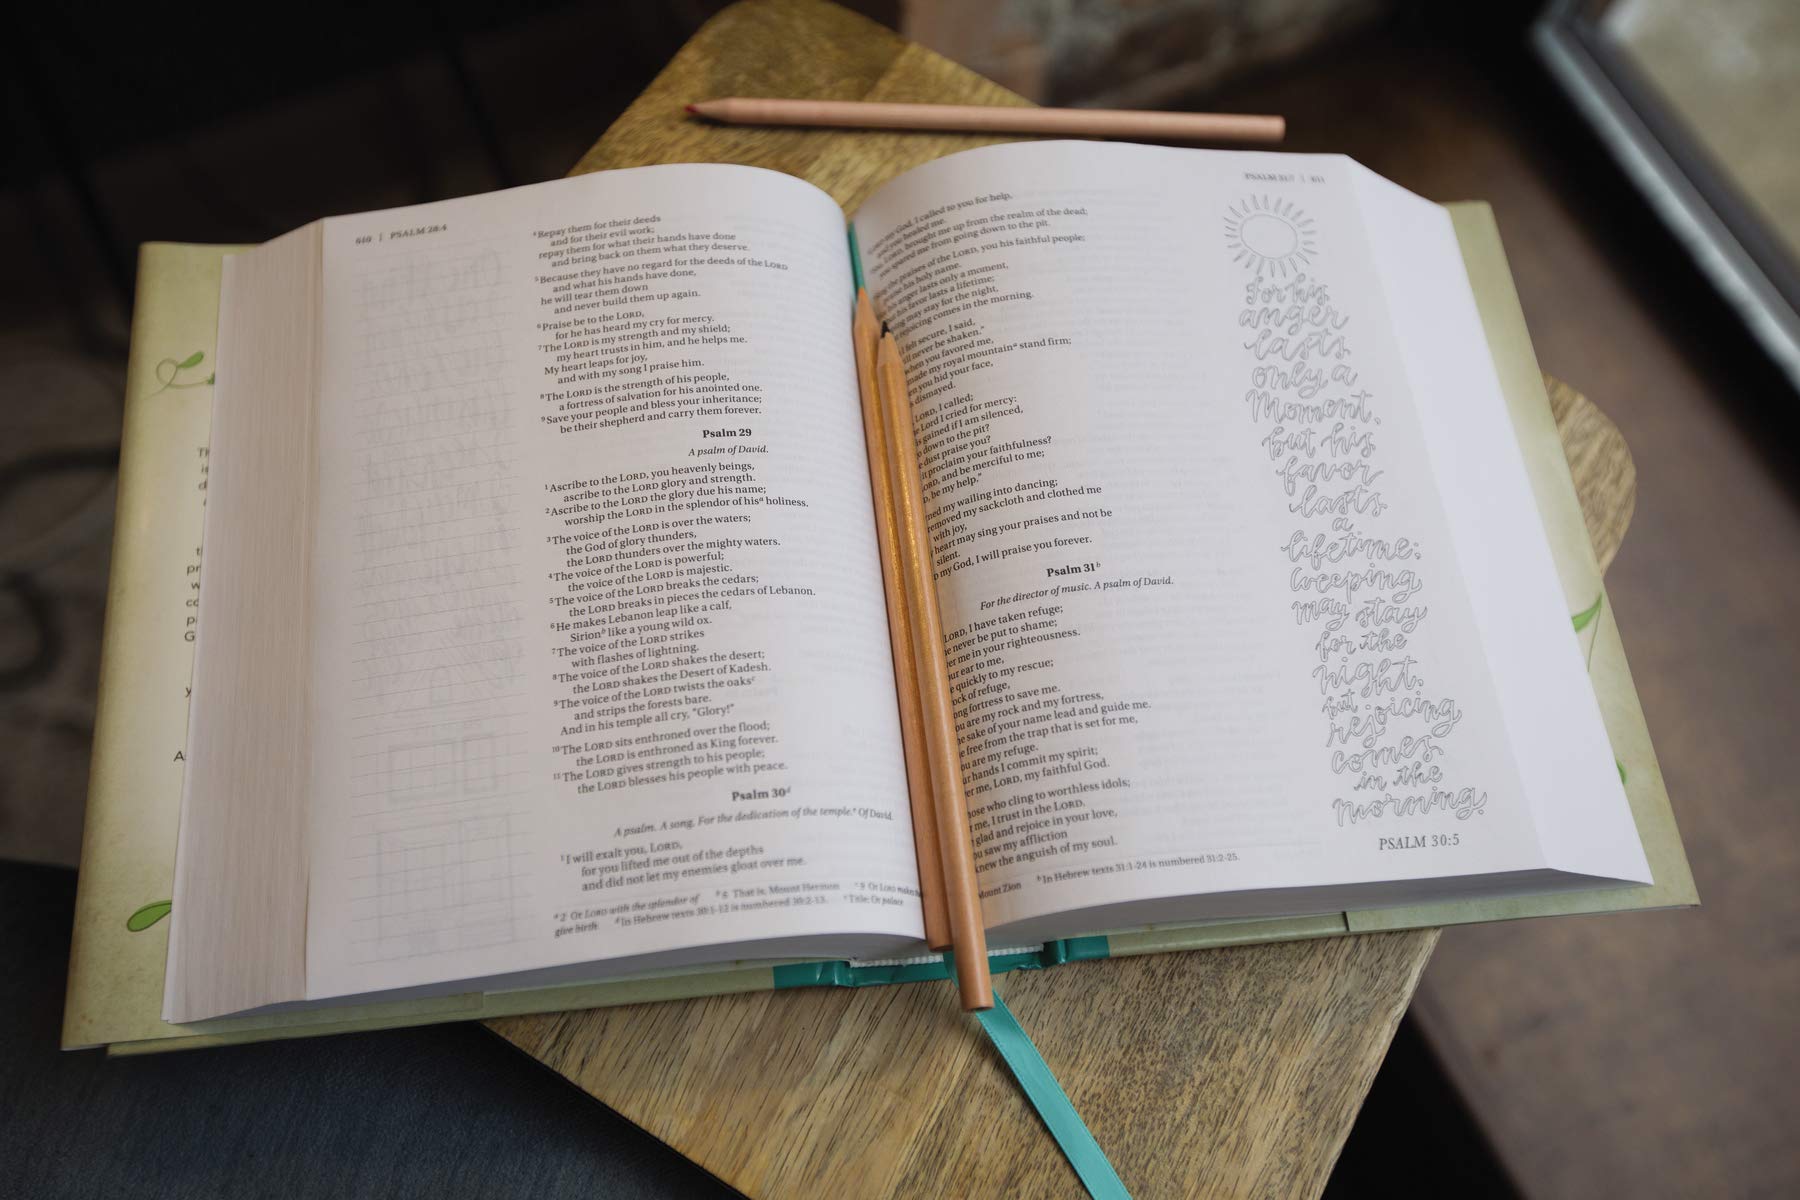 610 | PSALM 28:4
⁴Repay them for their deeds
and for their evil work;
repay them for what their hands have done
and bring back on them what they deserve.
⁵Because they have no regard for the deeds of the LORD
and what his hands have done,
he will tear them down
and never build them up again.
⁶Praise be to the LORD,
for he has heard my cry for mercy.
⁷The LORD is my strength and my shield;
my heart trusts in him, and he helps me.
My heart leaps for joy,
and with my song I praise him.
⁸The LORD is the strength of his people,
a fortress of salvation for his anointed one.
⁹Save your people and bless your inheritance;
be their shepherd and carry them forever.
Psalm 29
A psalm of David.
¹Ascribe to the LORD, you heavenly beings,
ascribe to the LORD glory and strength.
²Ascribe to the LORD the glory due his name;
worship the LORD in the splendor of hisᵃ holiness.
³The voice of the LORD is over the waters;
the God of glory thunders,
the LORD thunders over the mighty waters.
⁴The voice of the LORD is powerful;
the voice of the LORD is majestic.
⁵The voice of the LORD breaks the cedars;
the LORD breaks in pieces the cedars of Lebanon.
⁶He makes Lebanon leap like a calf,
Sirionᵇ like a young wild ox.
⁷The voice of the LORD strikes
with flashes of lightning.
⁸The voice of the LORD shakes the desert;
the LORD shakes the Desert of Kadesh.
⁹The voice of the LORD twists the oaksᶜ
and strips the forests bare.
And in his temple all cry, "Glory!"
¹⁰The LORD sits enthroned over the flood;
the LORD is enthroned as King forever.
¹¹The LORD gives strength to his people;
the LORD blesses his people with peace.
Psalm 30ᵈ
A psalm. A song. For the dedication of the temple.ᵉ Of David.
¹I will exalt you, LORD,
for you lifted me out of the depths
and did not let my enemies gloat over me.
ᵃ2 Or LORD with the splendor of ᵇ6 That is, Mount Hermon ᶜ9 Or LORD makes
give birth ᵈIn Hebrew texts 30:1-12 is numbered 30:2-13. ᵉTitle: Or palace
PSALM 31:7 | 611
my God, I called to you for help,
and you healed me.
LORD, brought me up from the realm of the dead;
you spared me from going down to the pit.
the praises of the LORD, you his faithful people;
praise his holy name.
his anger lasts only a moment,
but his favor lasts a lifetime;
may stay for the night,
rejoicing comes in the morning.
I felt secure, I said,
never be shaken."
when you favored me,
made my royal mountainᵃ stand firm;
you hid your face,
dismayed.
LORD, I called;
Lord I cried for mercy:
is gained if I am silenced,
down to the pit?
dust praise you?
it proclaim your faithfulness?
and be merciful to me;
be my help."
my wailing into dancing;
removed my sackcloth and clothed me
with joy,
heart may sing your praises and not be
silent.
my God, I will praise you forever.
Psalm 31ᵇ
For the director of music. A psalm of David.
LORD, I have taken refuge;
never be put to shame;
me in your righteousness.
ear to me,
quickly to my rescue;
of refuge,
fortress to save me.
are my rock and my fortress,
sake of your name lead and guide me.
free from the trap that is set for me,
are my refuge.
hands I commit my spirit;
me, LORD, my faithful God.
who cling to worthless idols;
me, I trust in the LORD.
glad and rejoice in your love,
saw my affliction
knew the anguish of my soul.
Mount Zion ᵇIn Hebrew texts 31:1-24 is numbered 31:2-25.
For his
anger
lasts
only a
Moment,
but his
favor
lasts
a
lifetime;
weeping
may stay
for the
night,
but
rejoicing
comes
in the
morning.
PSALM 30:5